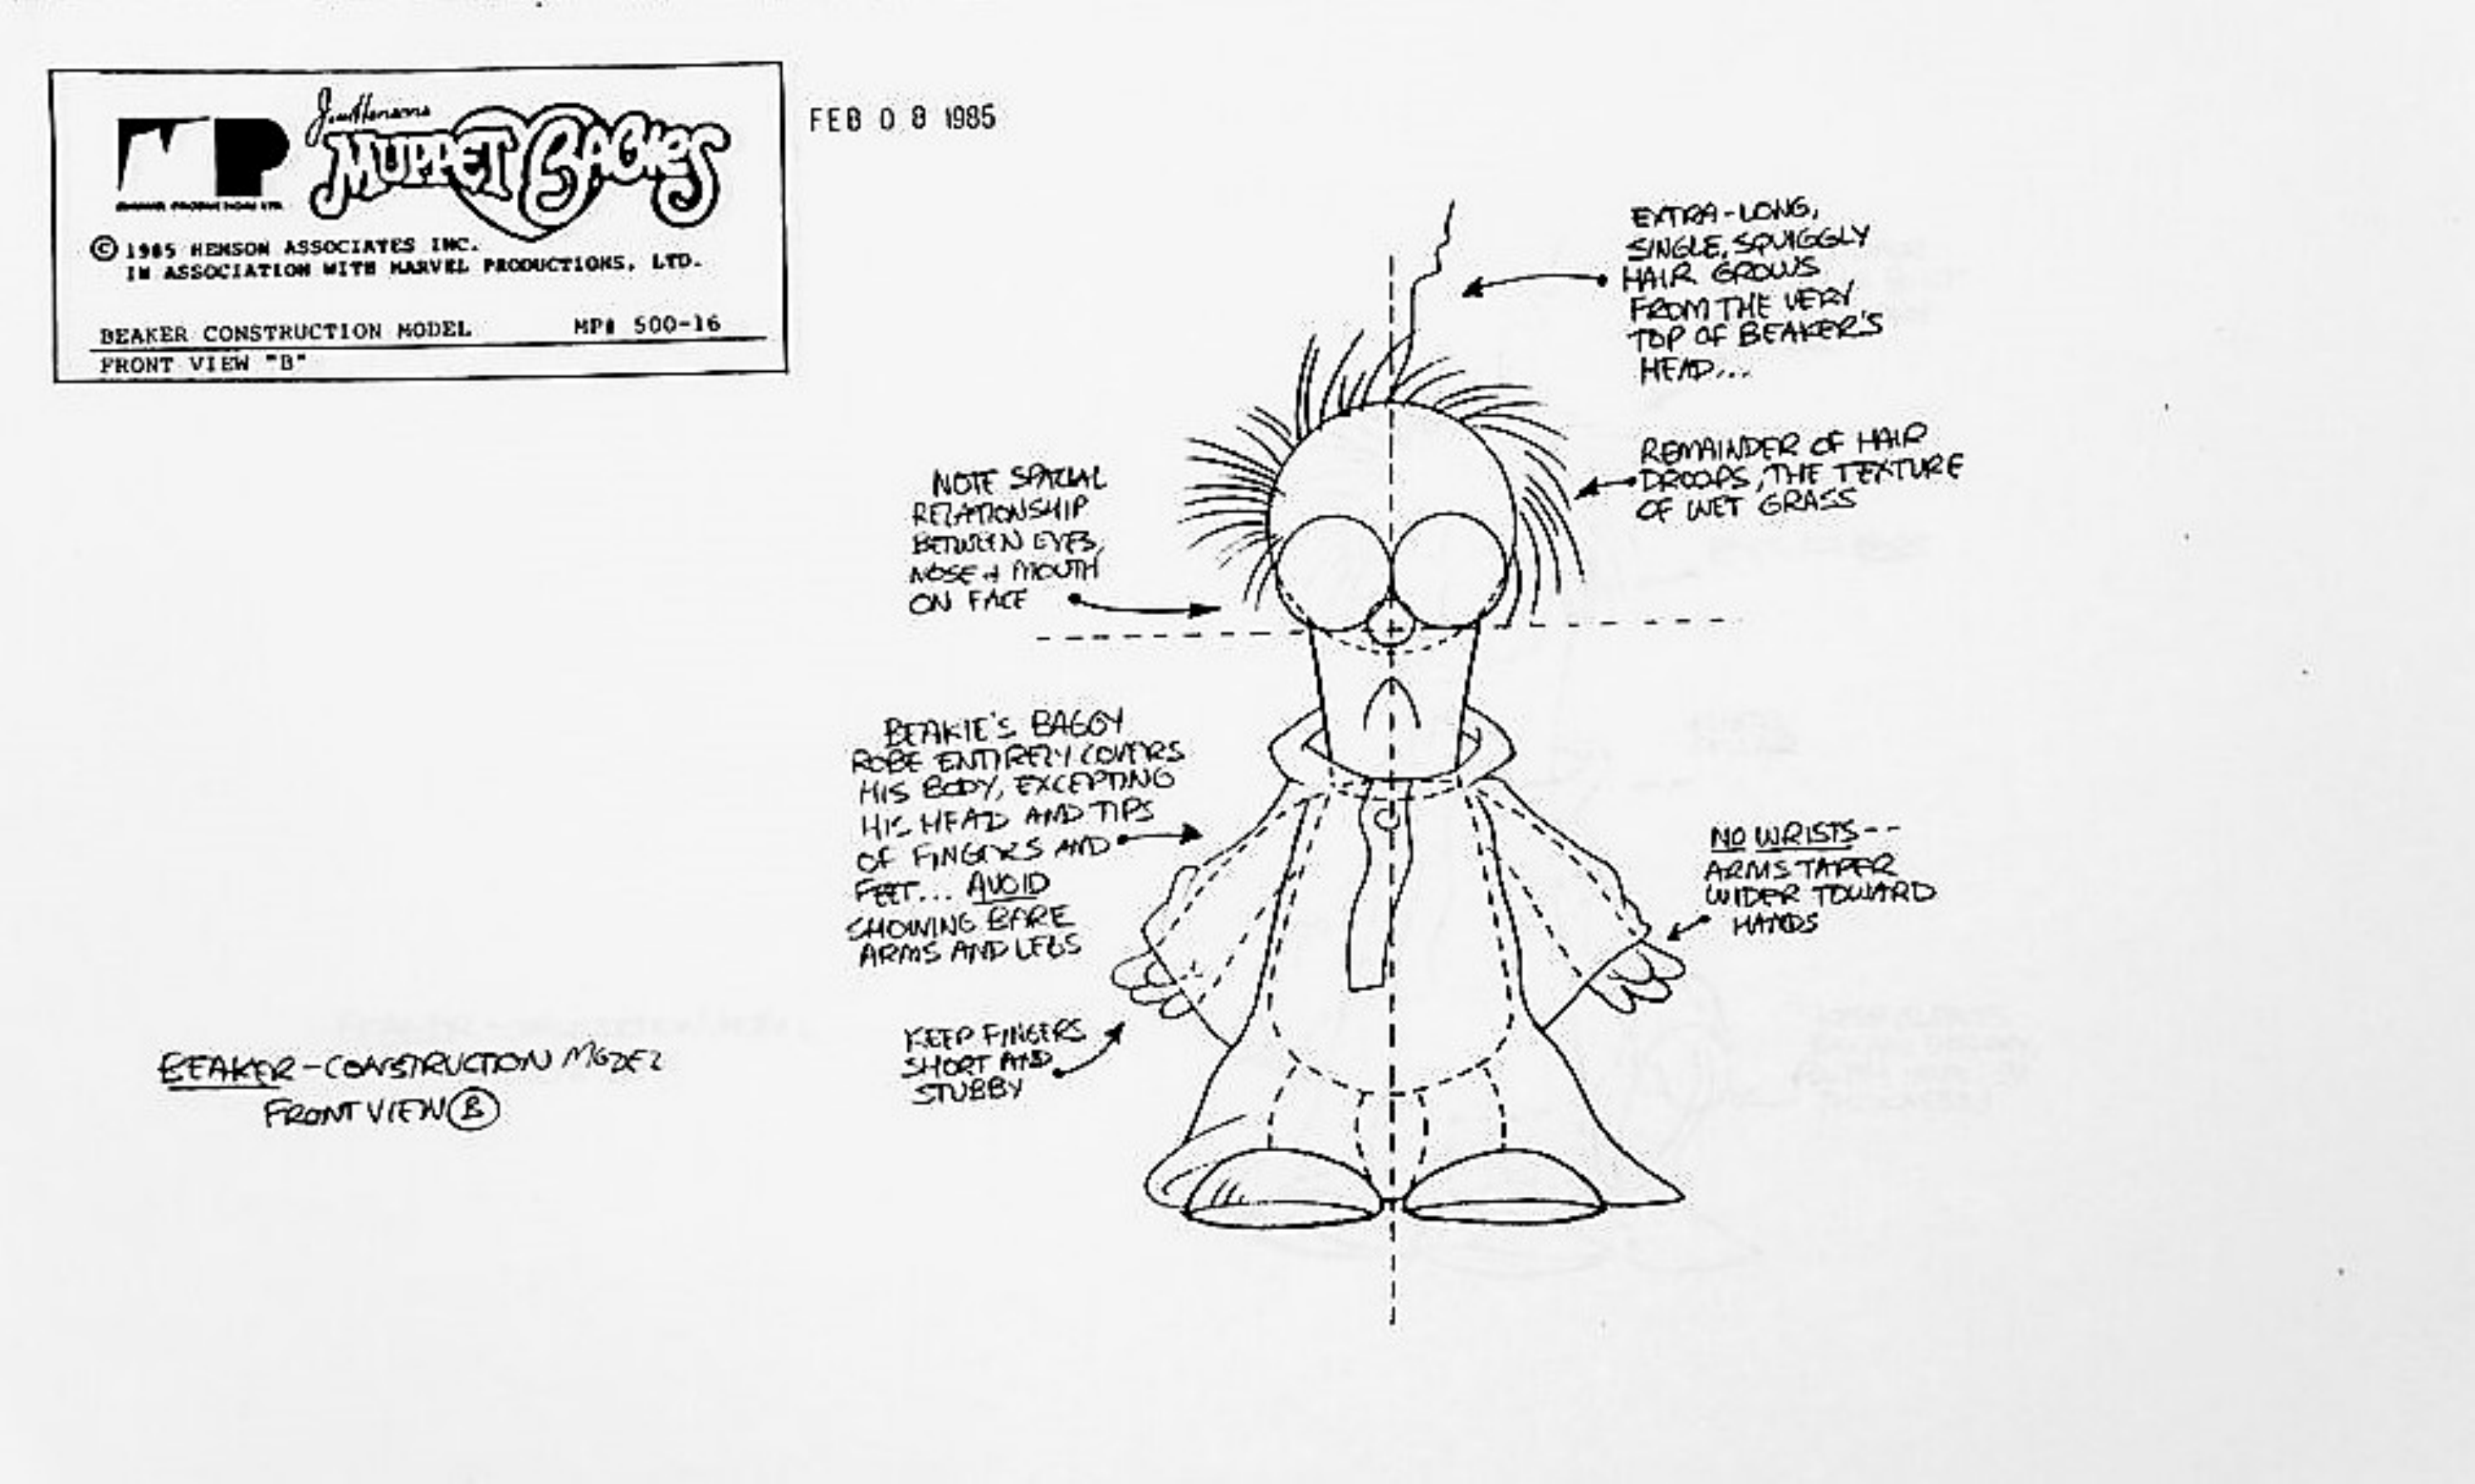 Jim Henson's
MUPPET BABIES
MP
© 1985 HENSON ASSOCIATES INC.
IN ASSOCIATION WITH MARVEL PRODUCTIONS, LTD.
BEAKER CONSTRUCTION MODEL MP# 500-16
FRONT VIEW "B"
FEB 08 1985
EXTRA-LONG,
SINGLE, SQUIGGLY
HAIR GROWS
FROM THE VERY
TOP OF BEAKER'S
HEAD...
REMAINDER OF HAIR
DROOPS, THE TEXTURE
OF WET GRASS
NOTE SPATIAL
RELATIONSHIP
BETWEEN EYES,
NOSE + MOUTH
ON FACE
BEAKIE'S BAGGY
ROBE ENTIRELY COVERS
HIS BODY, EXCEPTING
HIS HEAD AND TIPS
OF FINGERS AND
FEET... AVOID
SHOWING BARE
ARMS AND LEGS
NO WRISTS--
ARMS TAPER
WIDER TOWARD
HANDS
KEEP FINGERS
SHORT AND
STUBBY
BEAKER-CONSTRUCTION MODEL
FRONT VIEW B